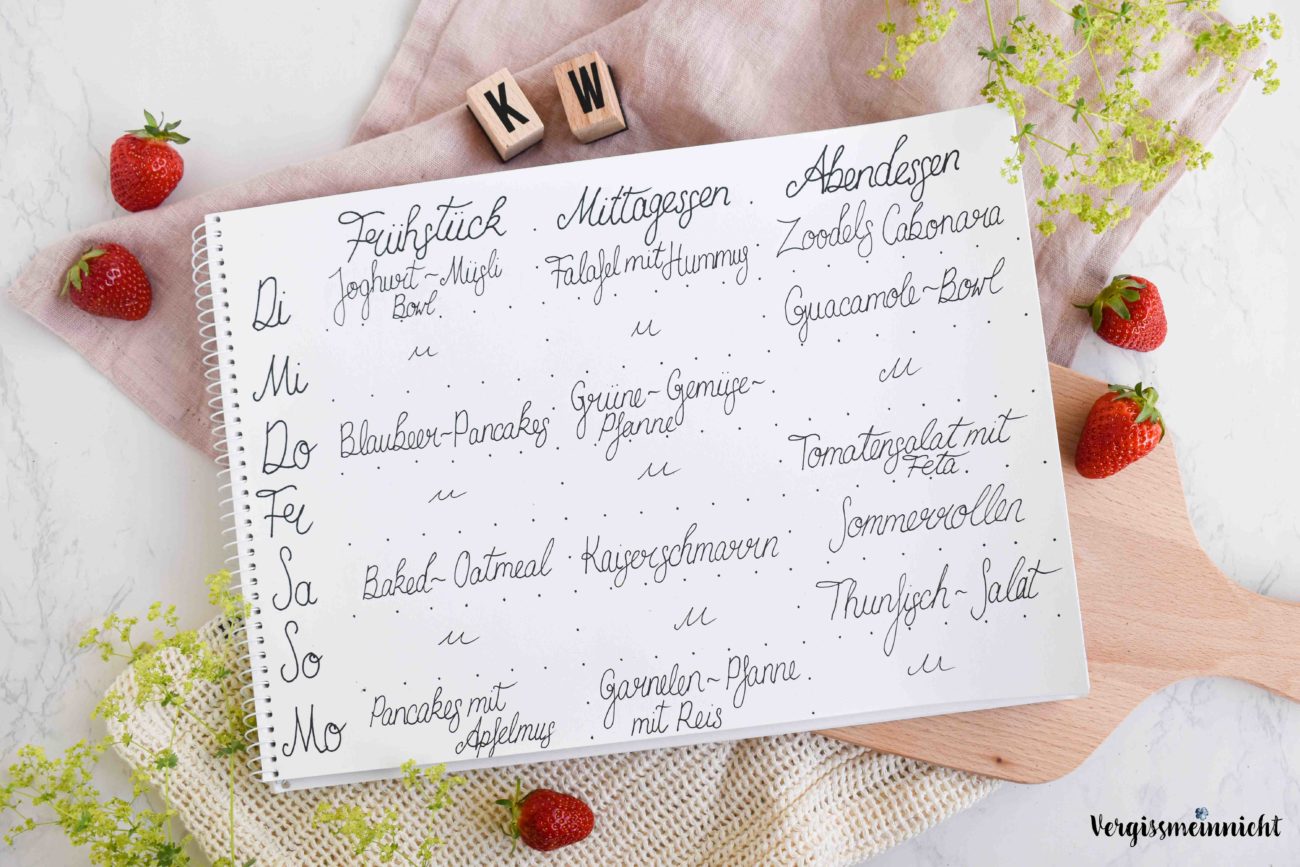 K W
Frühstück Mittagessen Abendessen
Di Joghurt~Müsli Falafel mit Hummus Zoodels Cabonara
Bowl
Mi " " Guacamole~Bowl
Do Blaubeer-Pancakes Grüne~Gemüse~ "
Pfanne
Fr " " Tomatensalat mit
Feta
Sa Baked~Oatmeal Kaiserschmarrn Sommerrollen
So " " Thunfisch~Salat
Mo Pancakes mit Garnelen~Pfanne "
Apfelmus mit Reis
Vergissmeinnicht